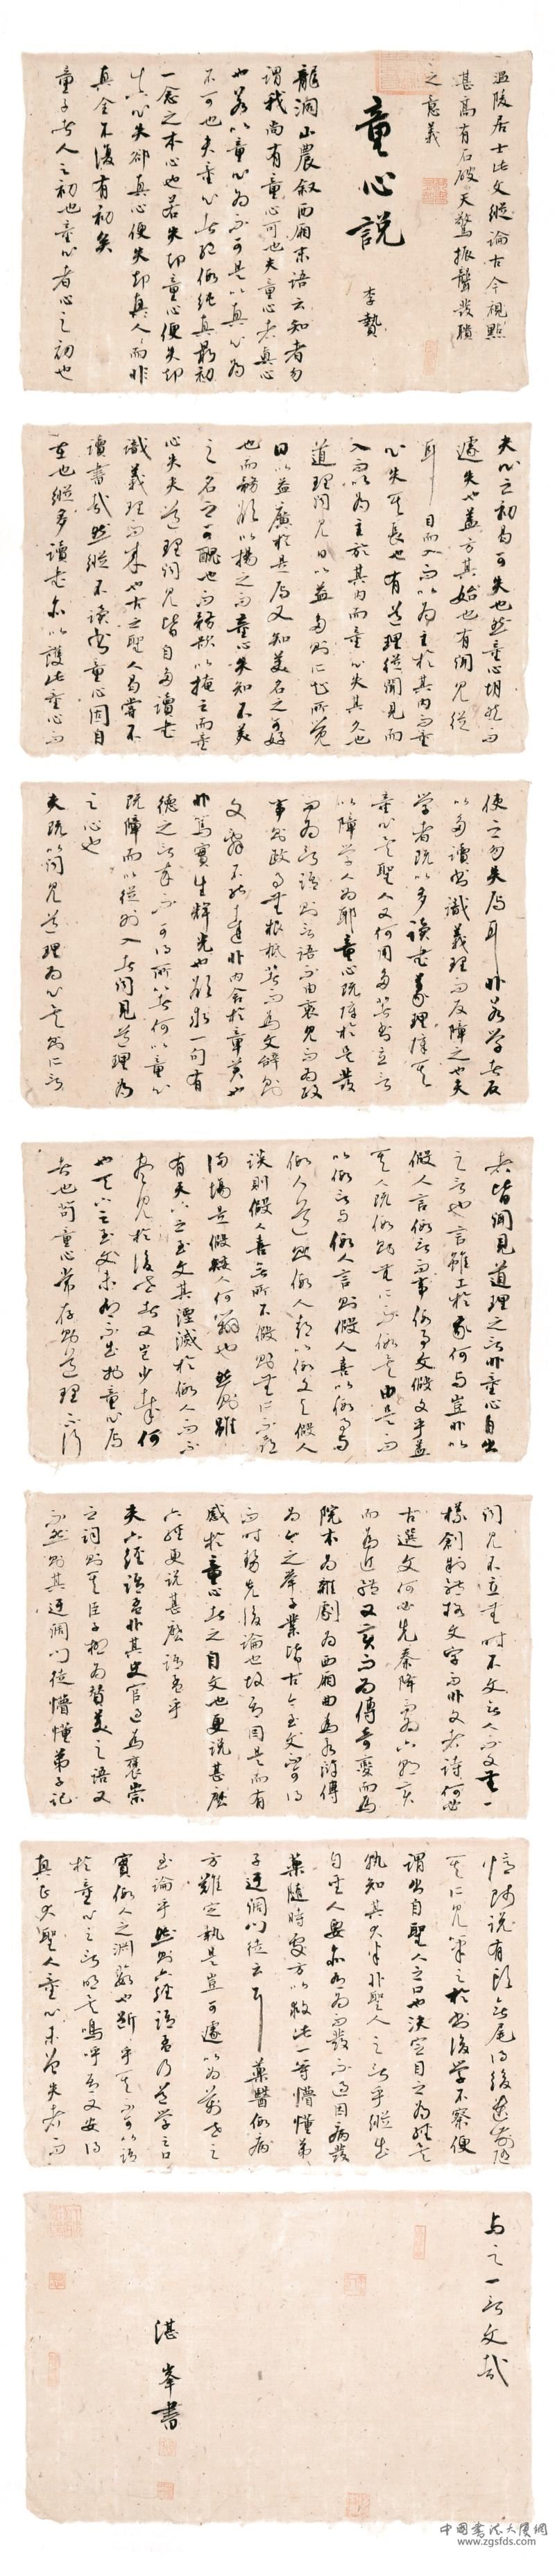 温陵居士此文縱論古今視點
堪高有石破天驚振聾發聵
之意義
童心説
李贄
龍洞山農叙西廂末語云知者勿
謂我尚有童心可也夫童心者真心
也若以童心為不可是以真心為
不可也夫童心者絕假純真最初
一念之本心也若失却童心便失却
真心失卻真心便失却真人人而非
真全不復有初矣
童子者人之初也童心者心之初也
夫心之初曷可失也然童心胡然而
遽失也蓋方其始也有聞見從
耳目而入而以為主於其内而童
心失其長也有道理從聞見而
入而以為主於其内而童心失其久也
道理聞見日以益多則所知所覺
日以益廣於是焉又知美名之可好
也而務欲以揚之而童心失知不美
之名之可醜也而務欲以掩之而童
心失夫道理聞見皆自多讀書
識義理而來也古之聖人曷嘗不
讀書哉然縱不讀書童心固自
在也縱多讀書亦以護此童心而
使之勿失焉耳非若學者反
以多讀書識義理而反障之也夫
學者既以多讀書義理障其
童心矣聖人又何用多著書立言
以障學人為耶童心既障於是發
而為言語則言語不由衷見而為政
事則政事無根柢著而為文辭則
文辭不能達非内含於章美也
非篤實生輝光也欲求一句有
德之言卒不可得所以者何以童心
既障而以從外入者聞見道理為
之心也
夫既以聞見道理為心矣則所言
者皆聞見道理之言非童心自出
之言也言雖工於我何與豈非以
假人言假言而事假事文假文乎蓋
其人既假則無所不假矣由是而
以假言與假人言則假人喜以假事與
假人道則假人喜以假文與假人
談則假人喜無所不假則無所不喜
滿場是假矮人何辯也然則雖
有天下之至文其湮滅於假人而不
盡見於後世者又豈少哉何
也天下之至文未有不出於童心焉
者也苟童心常存則道理不行
聞見不立無時不文無人不文無一
樣創制體格文字而非文者詩何必
古選文何必先秦降而為六朝變
而為近體又變而為傳奇變而為
院本為雜劇為西廂曲為水滸傳
為今之舉子業皆古今至文不可得
而時勢先後論也故吾因是而有
感於童心者之自文也更説甚麽
六經更説甚麽語孟乎
夫六經語孟非其史官過為褒崇
之詞則其臣子極為贊美之語又
不然則其迂闊門徒懵懂弟子記
憶師説有頭無尾得後遺前隨
其所見筆之於書後學不察便
謂出自聖人之口也決定目之為經矣
孰知其大半非聖人之言乎縱出
自聖人要亦有為而發不過因病發
藥隨時處方以救此一等懵懂弟
子迂闊門徒云耳藥醫假病
方難定執是豈可遽以為萬世之
至論乎然則六經語孟乃道學之口
實假人之淵藪也斷乎其不可以語
於童心之言明矣嗚呼吾又安得
真正大聖人童心未曾失者而
與之一言文哉
湛峯書
中國書法大廈網
www.zgsfds.com